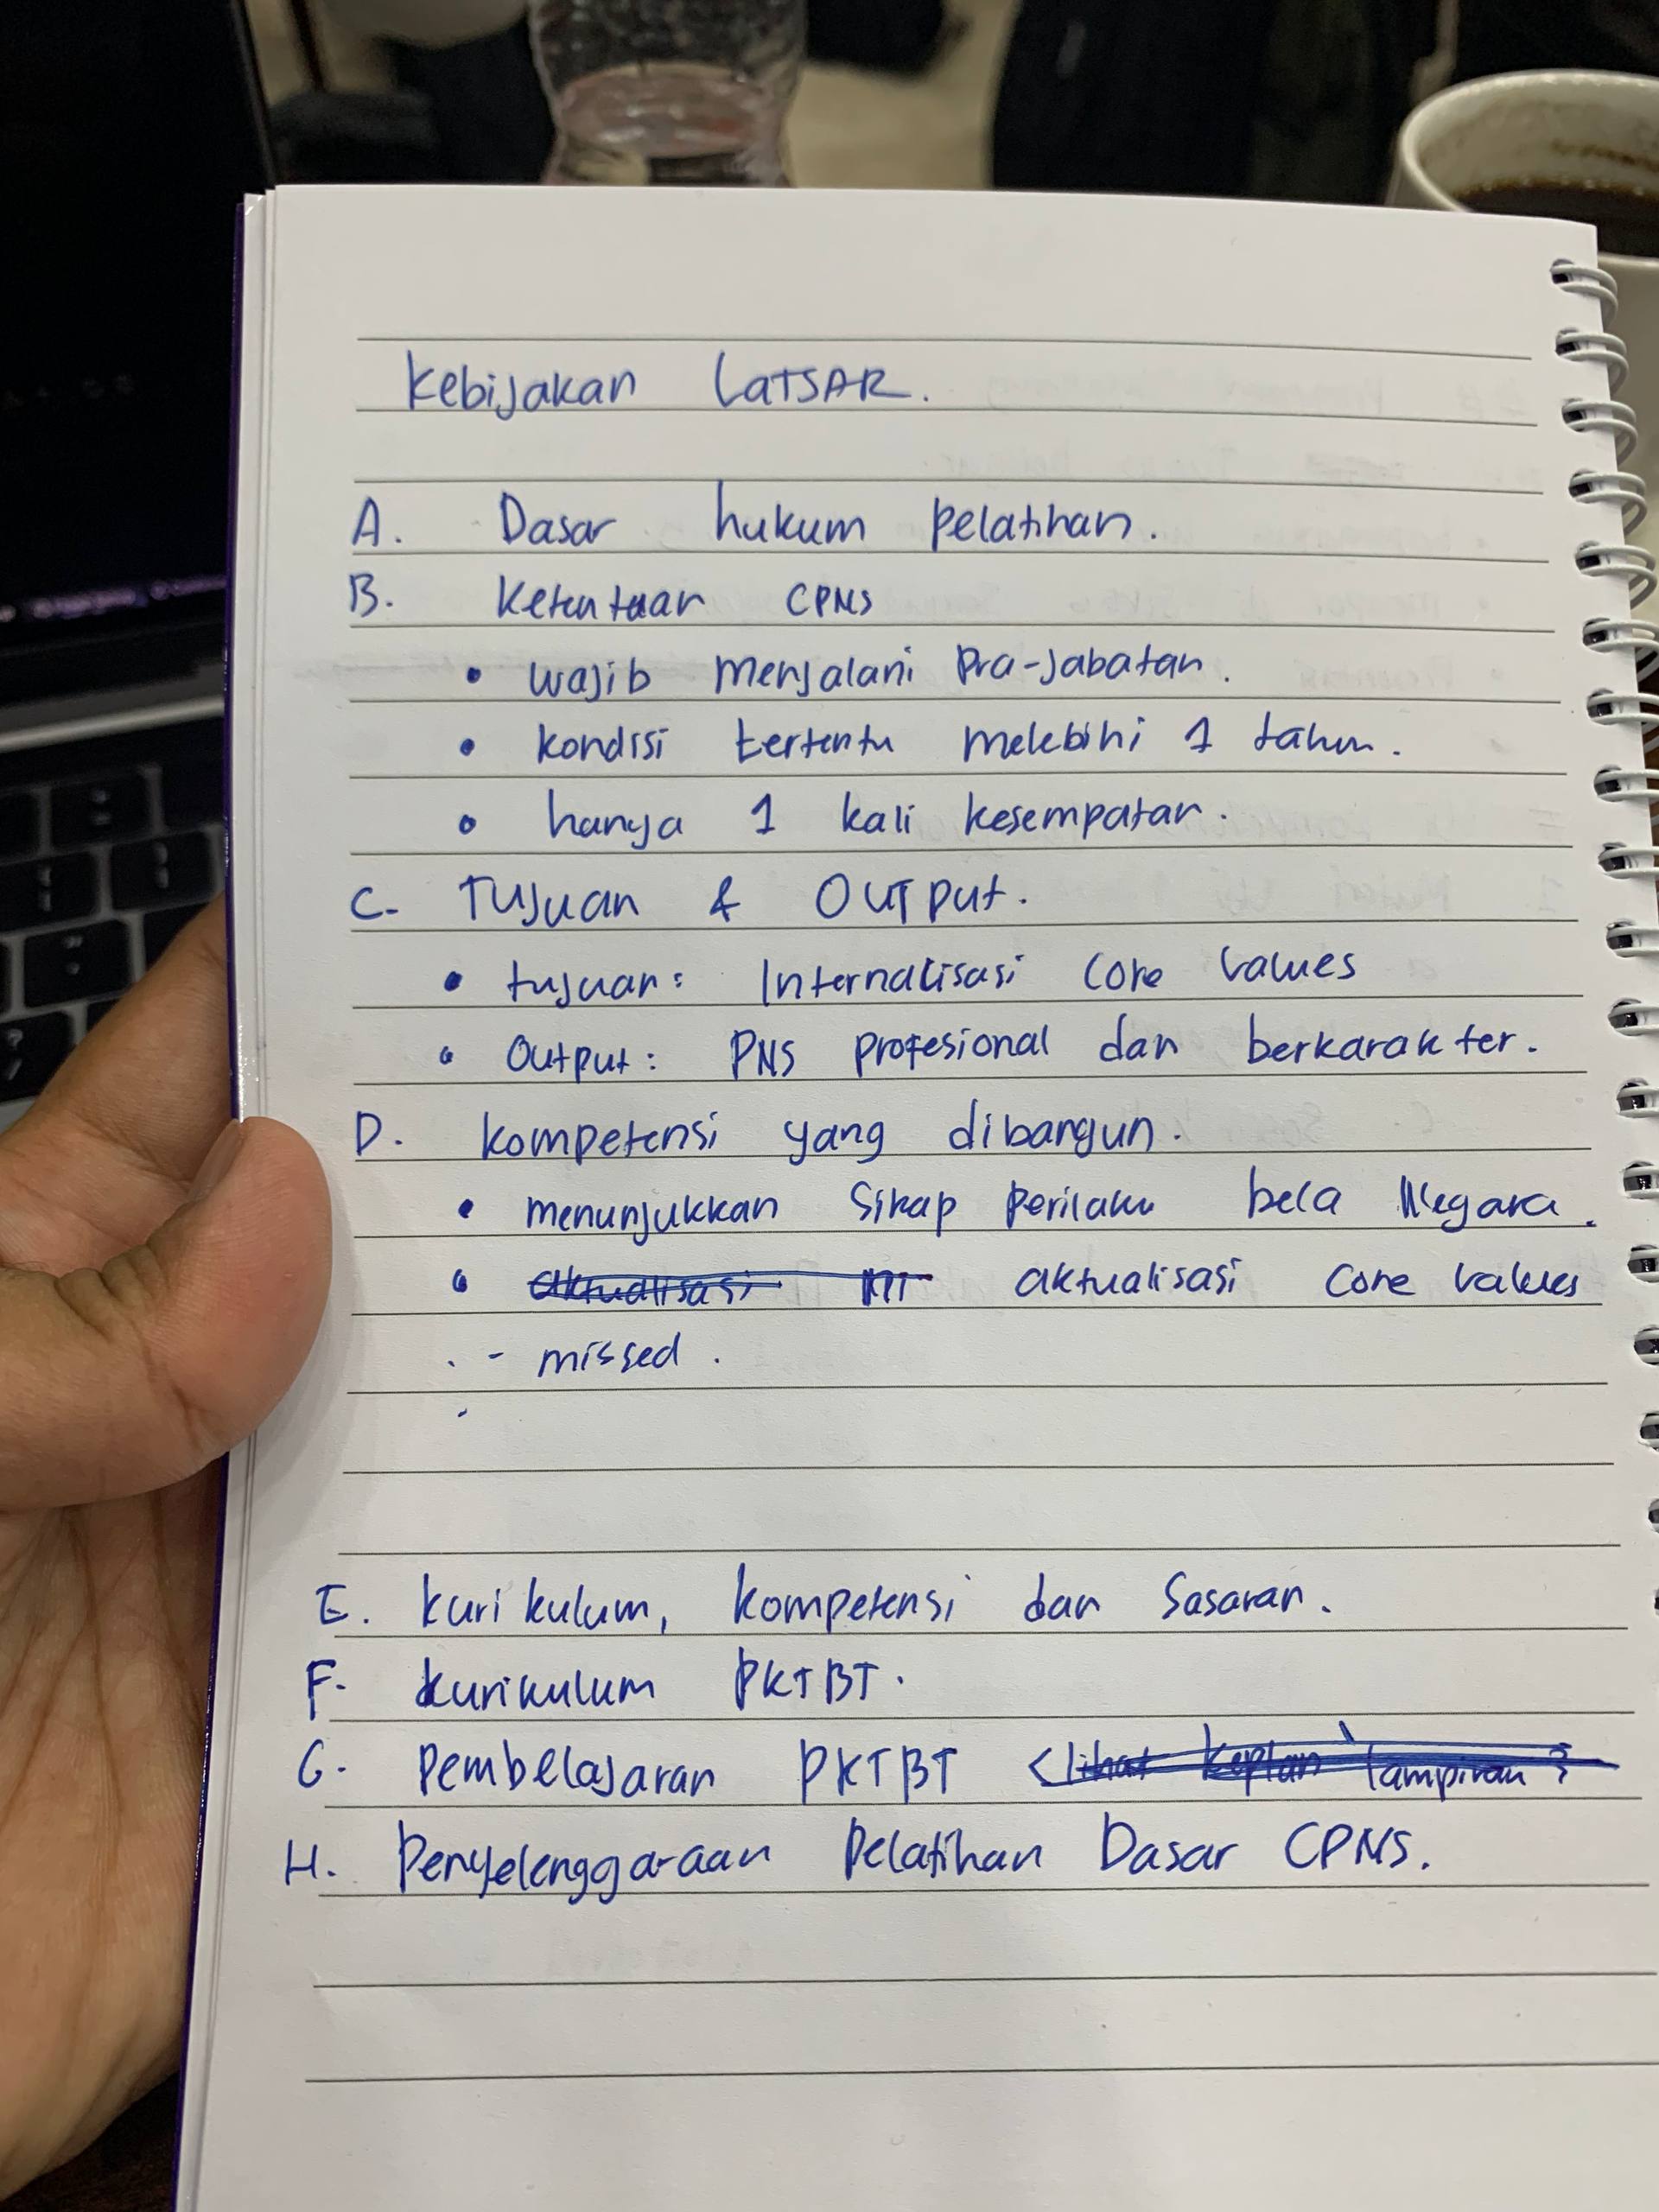 Kebijakan LATSAR.
A. Dasar hukum pelatihan.
B. Ketentuan CPNS
• wajib menjalani pra-jabatan.
• kondisi tertentu melebihi 1 tahun.
• hanya 1 kali kesempatan.
C. Tujuan & Output.
• tujuan: Internalisasi Core Values
• Output: PNS profesional dan berkarakter.
D. kompetensi yang dibangun.
• menunjukkan Sikap perilaku bela Negara.
• aktualisasi aktualisasi Core values
- missed.
E. kurikulum, kompetensi dan Sasaran.
F. kurikulum PKTBT.
G. Pembelajaran PKTBT <lihat lampiran
H. Penyelenggaraan Pelatihan Dasar CPNS.